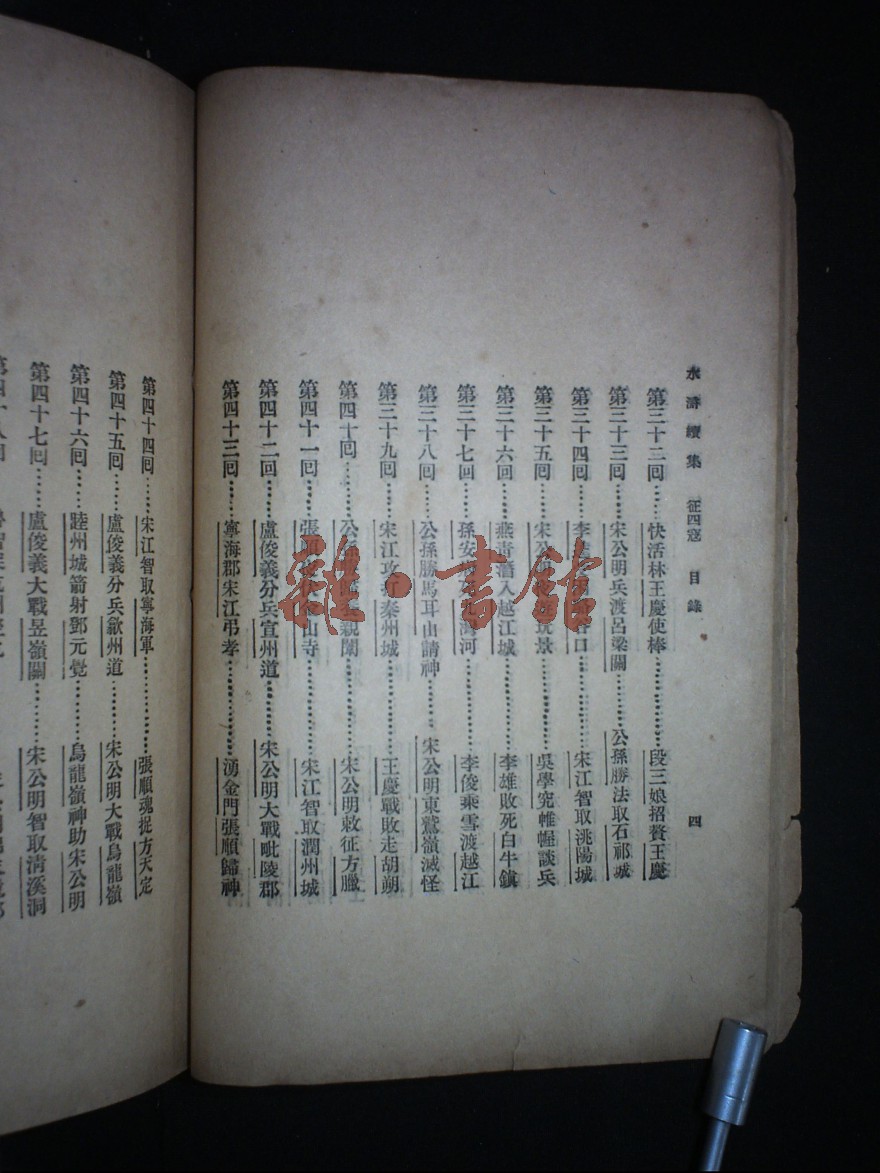 水滸續集 征四寇 目錄 四
第三十二回……快活林王慶使棒……段三娘招贅王慶
第三十三回……宋公明兵渡呂梁關……公孫勝法取石祁城
第三十四回……李逵口……宋江智取洮陽城
第三十五回……宋公明玩景……吳學究帷幄談兵
第三十六回……燕青潛入越江城……李雄敗死白牛鎮
第三十七回……孫安河……李俊乘雪渡越江
第三十八回……公孫勝馬耳山請神……宋公明東鷲嶺滅怪
第三十九回……宋江攻打秦州城……王慶戰敗走胡朔
第四十回……公孫親闈……宋公明敕征方臘
第四十一回……張順山寺……宋江智取潤州城
第四十二回……盧俊義分兵宣州道……宋公明大戰毗陵郡
第四十三回……寧海郡宋江弔孝……湧金門張順歸神
第四十四回……宋江智取寧海軍……張順魂捉方天定
第四十五回……盧俊義分兵歙州道……宋公明大戰烏龍嶺
第四十六回……睦州城箭射鄧元覺……烏龍嶺神助宋公明
第四十七回……盧俊義大戰昱嶺關……宋公明智取清溪洞
雜·書館